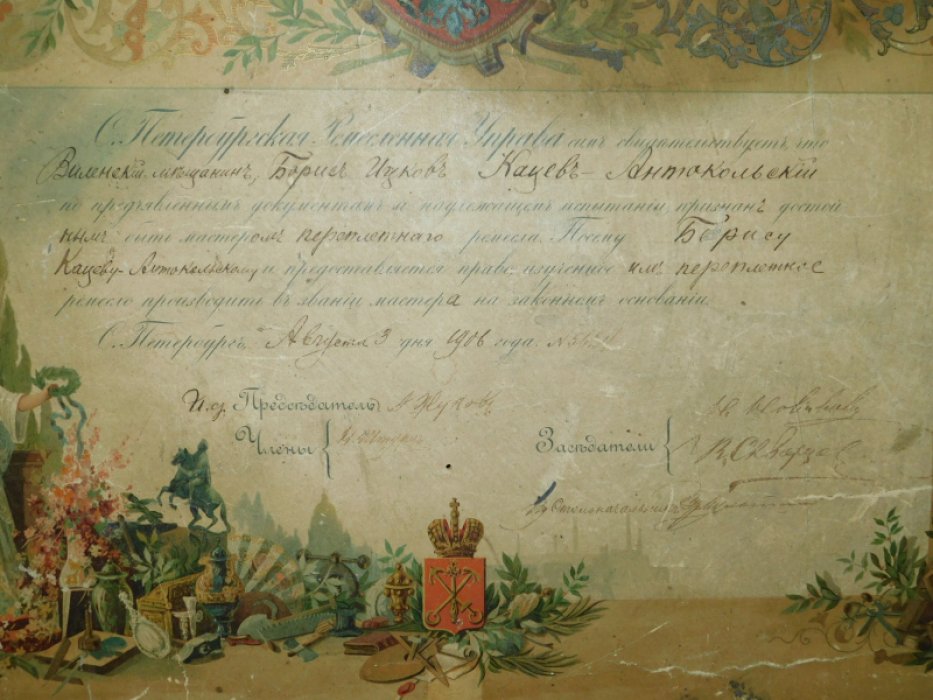 С. Петербургская Ремесленная Управа симъ свидѣтельствуетъ, что
Виленскій мѣщанинъ, Борисъ Ицковъ Кацевъ-Антокольскій
по предъявленнымъ документамъ и надлежащемъ испытаніи, признанъ достой
нымъ быть мастеромъ переплетнаго ремесла. Посему Борису
Кацеву-Антокольскому и предоставляется право изученное имъ переплетное
ремесло производить въ званіи мастера на законномъ основаніи.
С. Петербургъ. Августа 3 дня 1906 года. №
И.об. Предсѣдатель А Жуковъ
Члены
Засѣдатели
Столоначальникъ